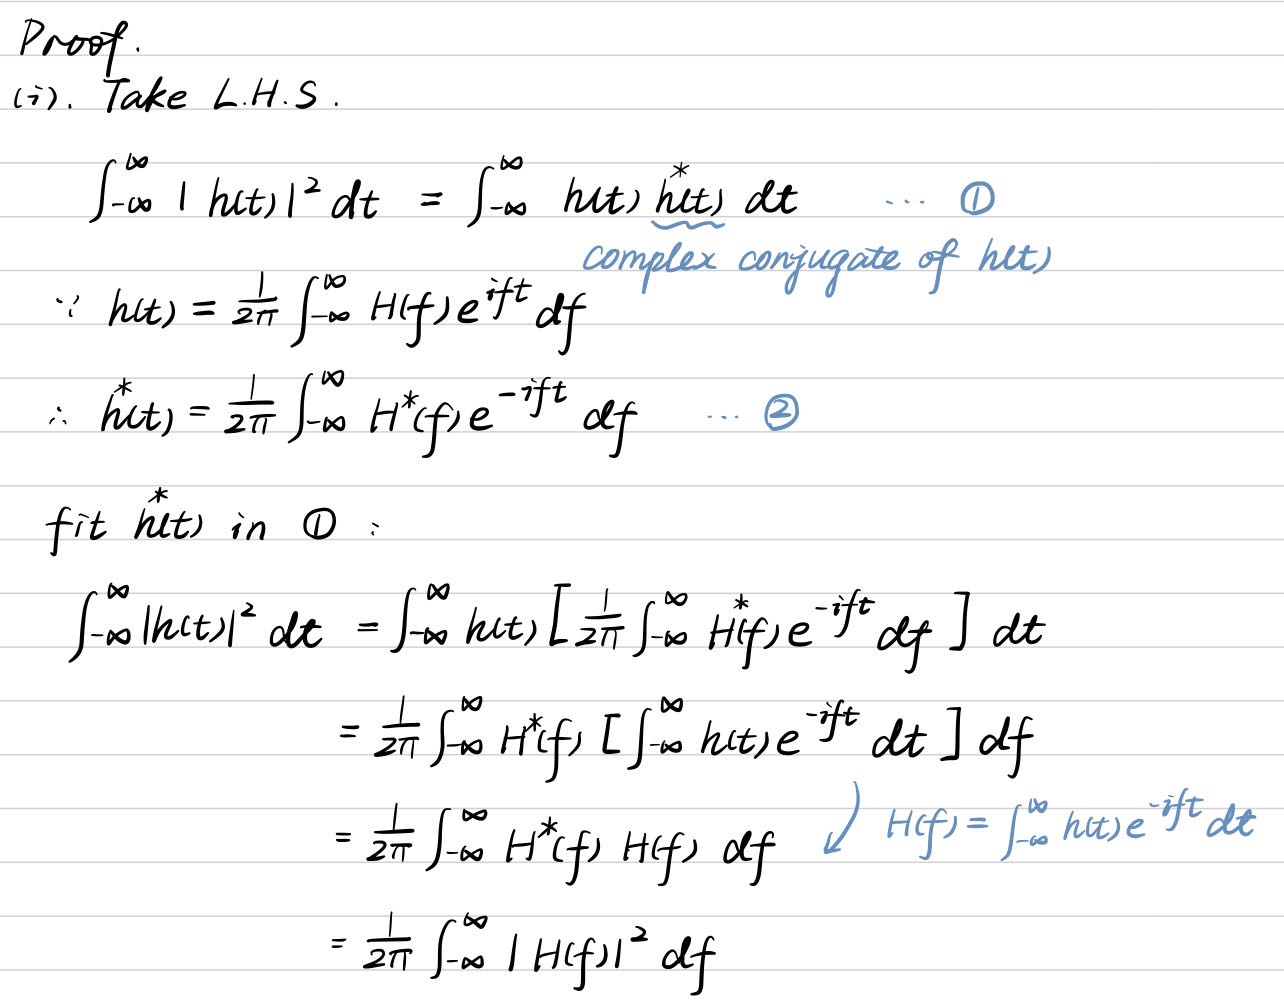 Proof.
(i). Take L.H.S.
∫_{-∞}^{∞} |h(t)|² dt = ∫_{-∞}^{∞} h(t) h*(t) dt ... ①
complex conjugate of h(t)
∵ h(t) = 1/2π ∫_{-∞}^{∞} H(f) e^{ift} df
∴ h*(t) = 1/2π ∫_{-∞}^{∞} H*(f) e^{-ift} df ... ②
fit h*(t) in ① :
∫_{-∞}^{∞} |h(t)|² dt = ∫_{-∞}^{∞} h(t) [ 1/2π ∫_{-∞}^{∞} H*(f) e^{-ift} df ] dt
= 1/2π ∫_{-∞}^{∞} H*(f) [ ∫_{-∞}^{∞} h(t) e^{-ift} dt ] df
= 1/2π ∫_{-∞}^{∞} H*(f) H(f) df ↙ H(f) = ∫_{-∞}^{∞} h(t) e^{-ift} dt
= 1/2π ∫_{-∞}^{∞} |H(f)|² df